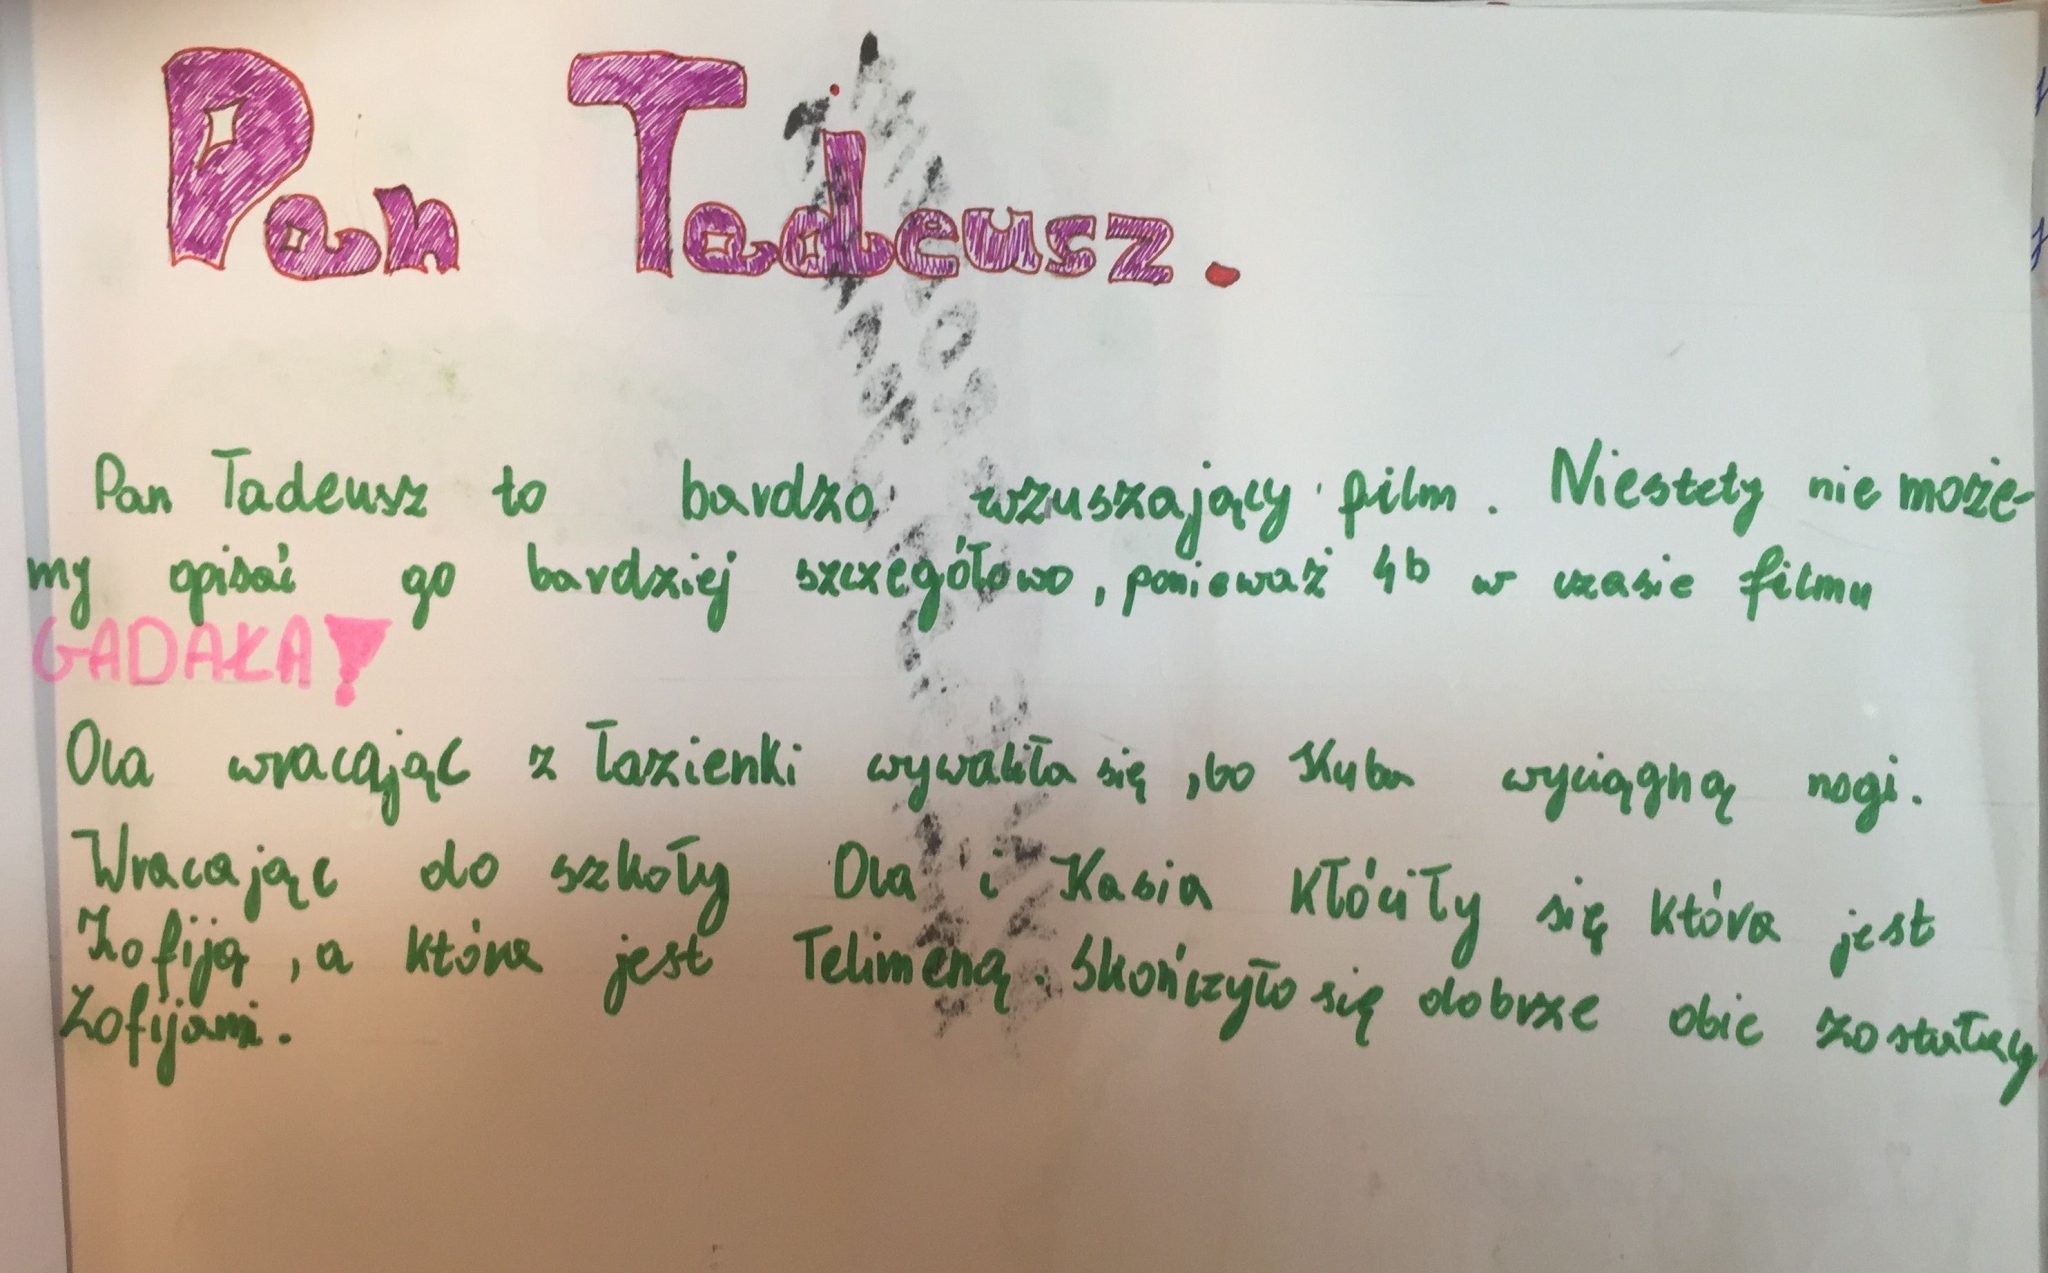 Pan Tadeusz.
Pan Tadeusz to bardzo wzuszający film. Niestety nie może-
my opisać go bardziej szczegółowo, ponieważ 4b w czasie filmu
GADAŁA!
Ola wracając z łazienki wywaliła się, bo Kuba wyciągną nogi.
Wracając do szkoły Ola i Kasia kłóciły się która jest
Zofiją, a która jest Telimeną. Skończyło się dobrze obie
Zofijami.